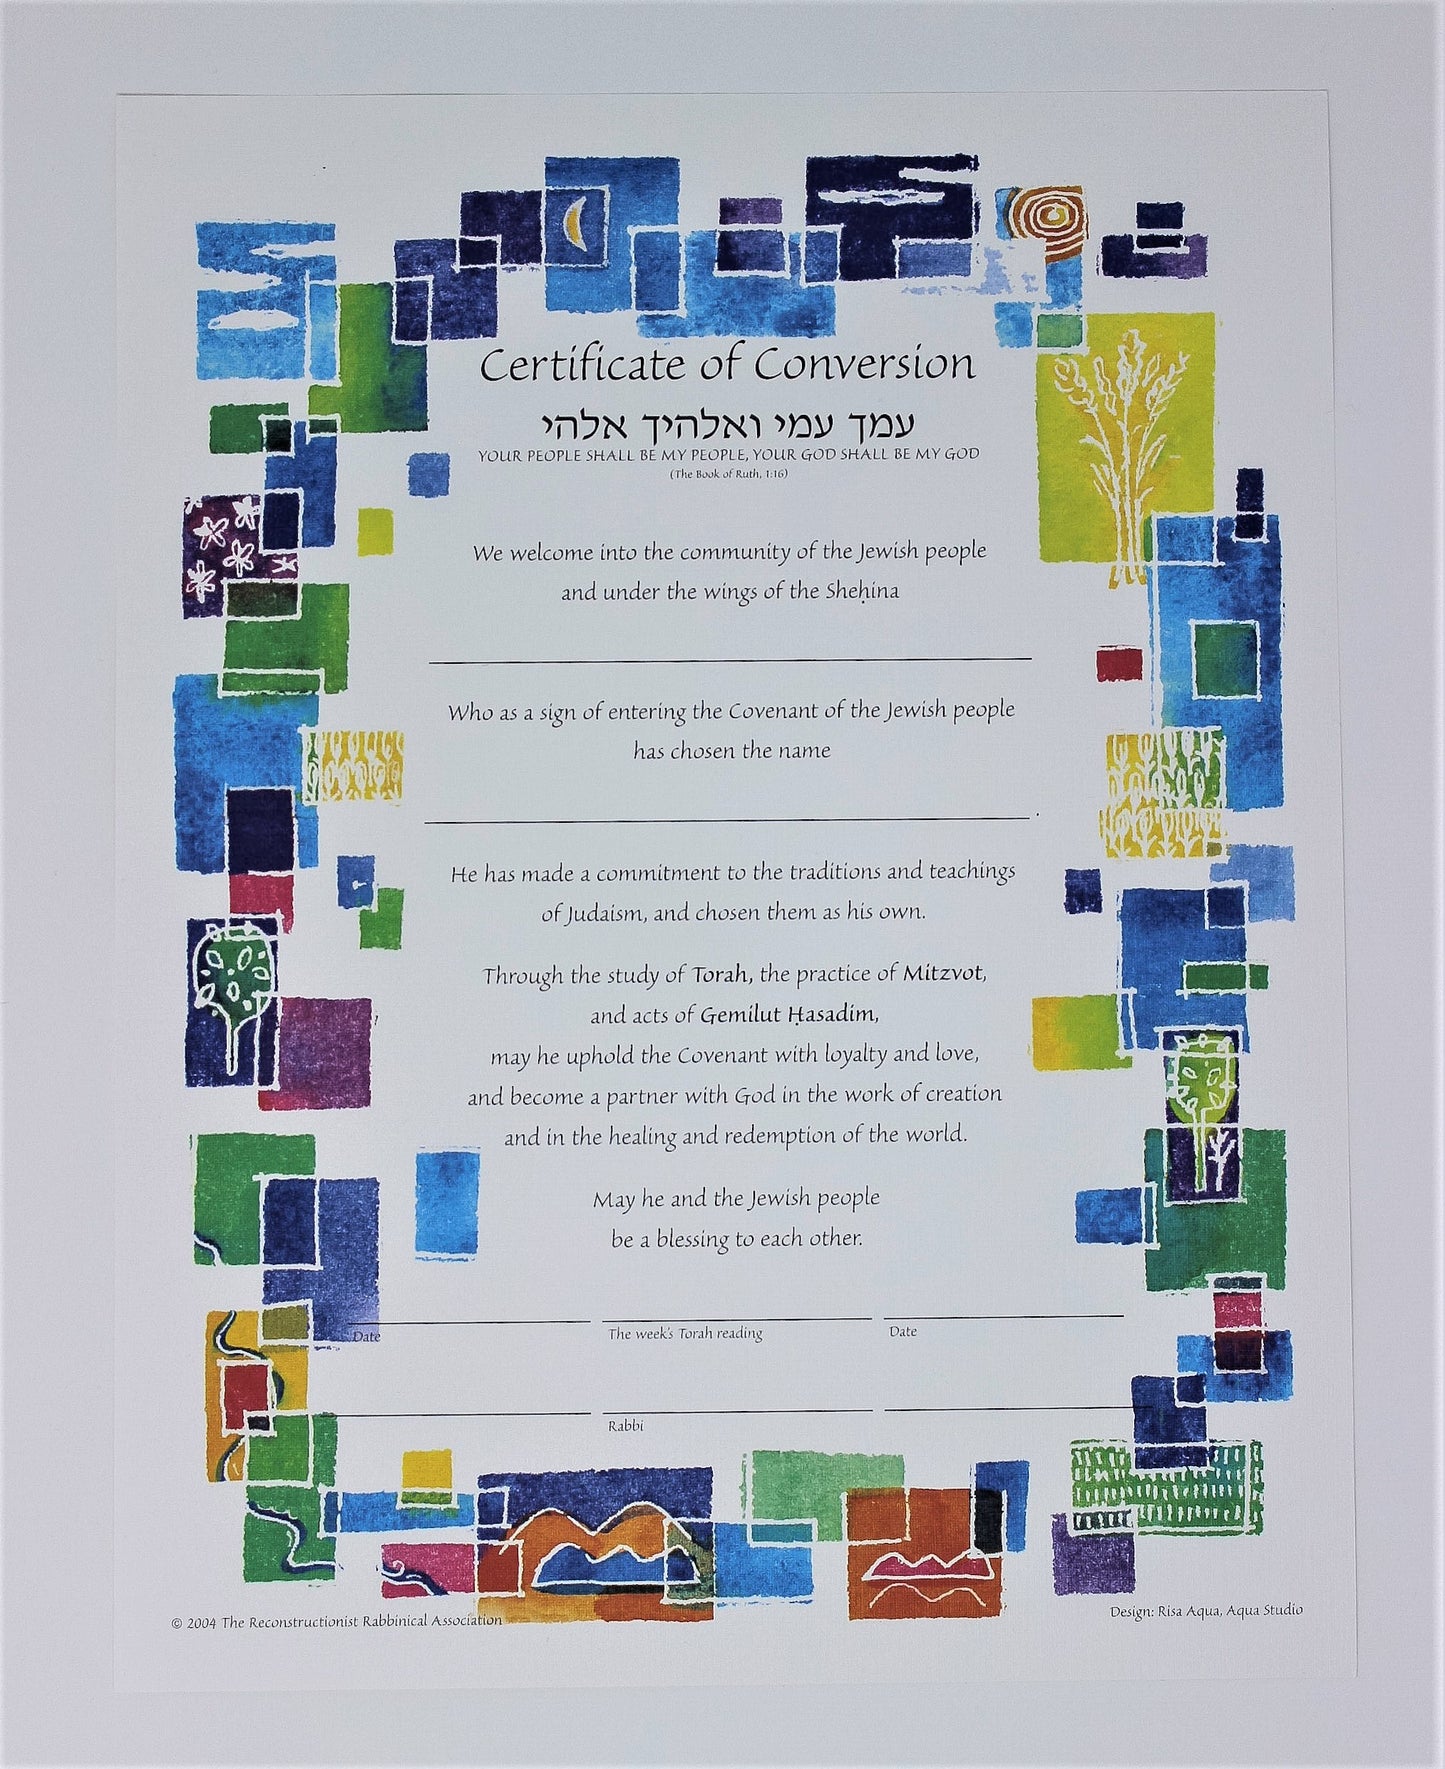 Certificate of Conversion
עמך עמי ואלהיך אלהי
YOUR PEOPLE SHALL BE MY PEOPLE, YOUR GOD SHALL BE MY GOD
(The Book of Ruth, 1:16)
We welcome into the community of the Jewish people
and under the wings of the Sheḥina
Who as a sign of entering the Covenant of the Jewish people
has chosen the name
He has made a commitment to the traditions and teachings
of Judaism, and chosen them as his own.
Through the study of Torah, the practice of Mitzvot,
and acts of Gemilut Ḥasadim,
may he uphold the Covenant with loyalty and love,
and become a partner with God in the work of creation
and in the healing and redemption of the world.
May he and the Jewish people
be a blessing to each other.
Date The week's Torah reading Date
Rabbi
© 2004 The Reconstructionist Rabbinical Association
Design: Risa Aqua, Aqua Studio